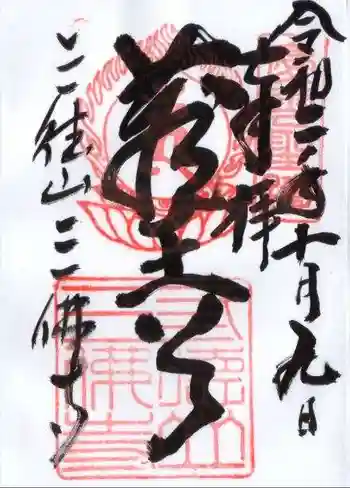 令和二年十月九日
奉拝
蔵王
三徳山三佛寺